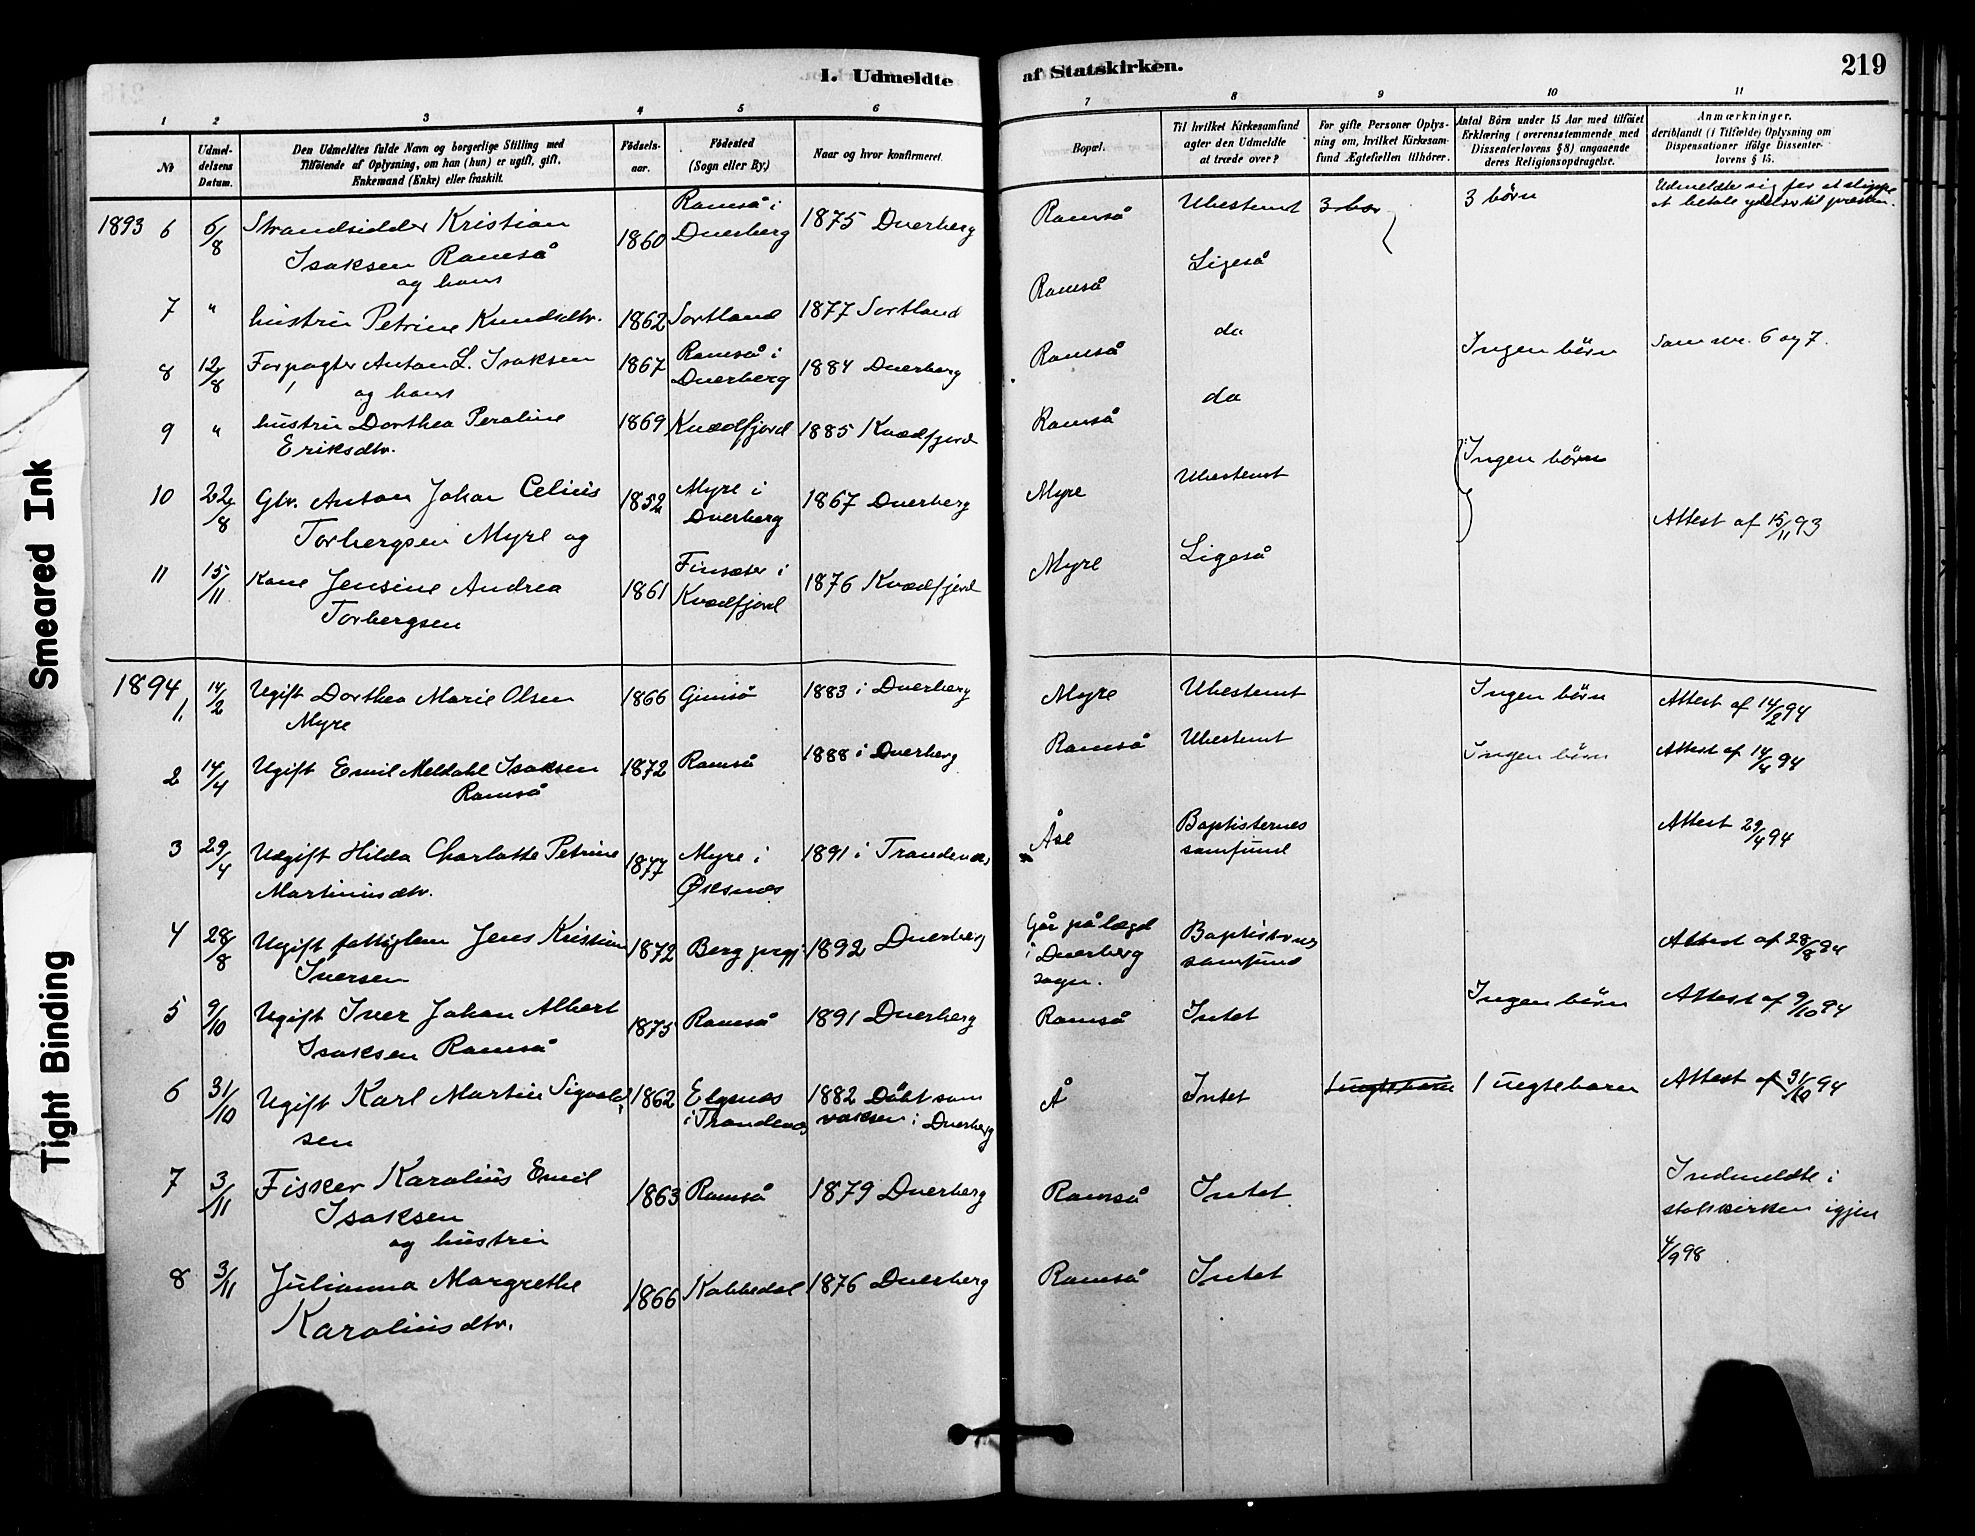 Smeared Ink
Tight Binding
I. Udmeldte af Statskirken. 219
1 2 3 4 5 6 7 8 9 10 11
№
Udmeldelsens Datum.
Den Udmeldtes fulde Navn og borgerlige Stilling med
Tilföiende af Oplysning, om han (hun) er ugift, gift,
Enkemand (Enke) eller fraskilt.
Födselsaar.
Födested
(Sogn eller By.)
Naar og hvor konfirmeret.
Bopæl.
Til hvilket Kirkesamfund
agter den Udmeldte
at træde over?
For gifte Personer Oplysning om, hvilket Kirkesamfund Ægtefællen tilhörer.
Antal Börn under 15 Aar med tilföiet
Erklæring (overensstemmende med
Dissenterlovens § 8) angaaende
deres Religionsopdragelse.
Anmærkninger,
deriblandt (i Tilfælde) Oplysning om
Dispensationer ifölge Dissenterlovens § 15.
1893 6 6/8 Strandsidder Kristian Isaksen Ramså og hans 1860 Ramså i Dverberg 1875 Dverberg Ramså Ubestemt 3 bør 3 børn Udmeldte sig for at slippe at betale ydelse til præsten.
7 " hustru Petrine Knudsdtr. 1862 Sortland 1877 Sortland Ramså Ligeså
8 12/8 Forpagter Anton L. Isaksen og hans 1867 Ramså i Dverberg 1884 Dverberg Ramså do Ingen børn Som nr. 6 og 7.
9 " hustru Dorthea Peroline Eriksdtr. 1869 Kvædfjord 1885 Kvædfjord Ramså do
10 22/8 Gbr. Anton Johan Celius Torbergsen Myre og 1852 Myre i Dverberg 1867 Dverberg Myre Ubestemt Ingen børn
11 15/11 Kone Jensine Andrea Torbergsen 1861 Finsæter i Kvædfjord 1876 Kvædfjord Myre Ligeså Attest af 15/11 93
1894 1. 14/2 Ugift Dorthea Marie Olsen Myre 1866 Gimsø 1883 i Dverberg Myre Ubestemt Ingen børn Attest af 14/2 94
2 14/4 Ugift Emil Meldahl Isaksen Ramså 1872 Ramså 1888 i Dverberg Ramså Ubestemt Ingen børn Attest af 14/4 94
3 29/4 Ugift Hilda Charlotte Petrine Martinusdtr. 1877 Myre i Øksnes 1891 i Trondenæs Åse Baptisternes samfund Attest 29/4 94
4 28/8 Ugift fattiglem Jens Kristian Iversen 1872 Berg prgj. 1892 Dverberg Går på lægd i Dverberg sogn. Baptisternes samfund Attest af 28/8 94
5 9/10 Ugift Iver Johan Albert Isaksen Ramså 1875 Ramså 1891 Dverberg Ramså Intet Ingen børn Attest af 9/10 94
6 31/10 Ugift Karl Martin Sigvaldsen 1862 Elgsnæs i Trondenæs 1882 Døbt som voksen i Dverberg Å Intet 1 uægte barn 1 uægte barn Attest af 31/10 94
7 3/11 Fisker Karolius Emil Isaksen og hustru 1863 Ramså 1879 Dverberg Ramså Intet Indmeldte i statskirken igjen 4/9 98
8 3/11 Julianna Margrethe Karoliusdtr. 1866 Kobbedal 1876 Dverberg Ramså Intet